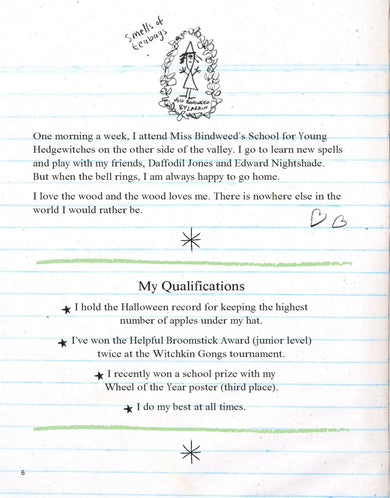 Smells of
teabags
MISS BINDWEED
BY LARKIN
One morning a week, I attend Miss Bindweed's School for Young
Hedgewitches on the other side of the valley. I go to learn new spells
and play with my friends, Daffodil Jones and Edward Nightshade.
But when the bell rings, I am always happy to go home.
I love the wood and the wood loves me. There is nowhere else in the
world I would rather be.
My Qualifications
I hold the Halloween record for keeping the highest
number of apples under my hat.
I've won the Helpful Broomstick Award (junior level)
twice at the Witchkin Gongs tournament.
I recently won a school prize with my
Wheel of the Year poster (third place).
I do my best at all times.
6